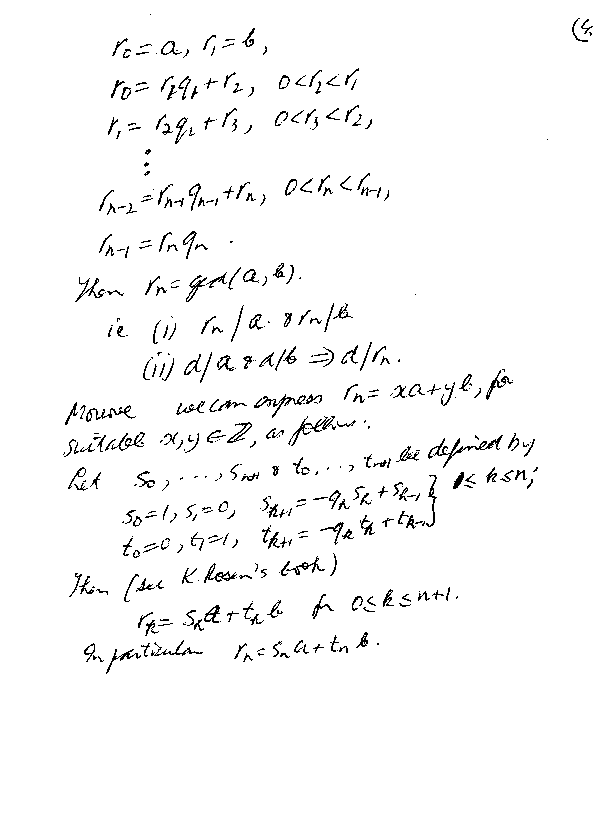 (4.
r₀ = a, r₁ = b,
r₀ = r₁q₁ + r₂, 0 < r₂ < r₁
r₁ = r₂q₂ + r₃, 0 < r₃ < r₂,
⋮
rₙ₋₂ = rₙ₋₁qₙ₋₁ + rₙ, 0 < rₙ < rₙ₋₁,
rₙ₋₁ = rₙqₙ.
Then rₙ = gcd(a, b).
ie (i) rₙ/a & rₙ/b
(ii) d/a & d/b ⇒ d/rₙ.
Moreover we can express rₙ = xa + yb, for
suitable x, y ∈ ℤ, as follows:
Let s₀, ..., sₙ₊₁ & t₀, ..., tₙ₊₁ be defined by
s₀ = 1, s₁ = 0, sₖ₊₁ = -qₖsₖ + sₖ₋₁ } 1 ≤ k ≤ n;
t₀ = 0, t₁ = 1, tₖ₊₁ = -qₖtₖ + tₖ₋₁
Then (see K. Rosen's book)
rₖ = sₖa + tₖb for 0 ≤ k ≤ n+1.
In particular rₙ = sₙa + tₙb.